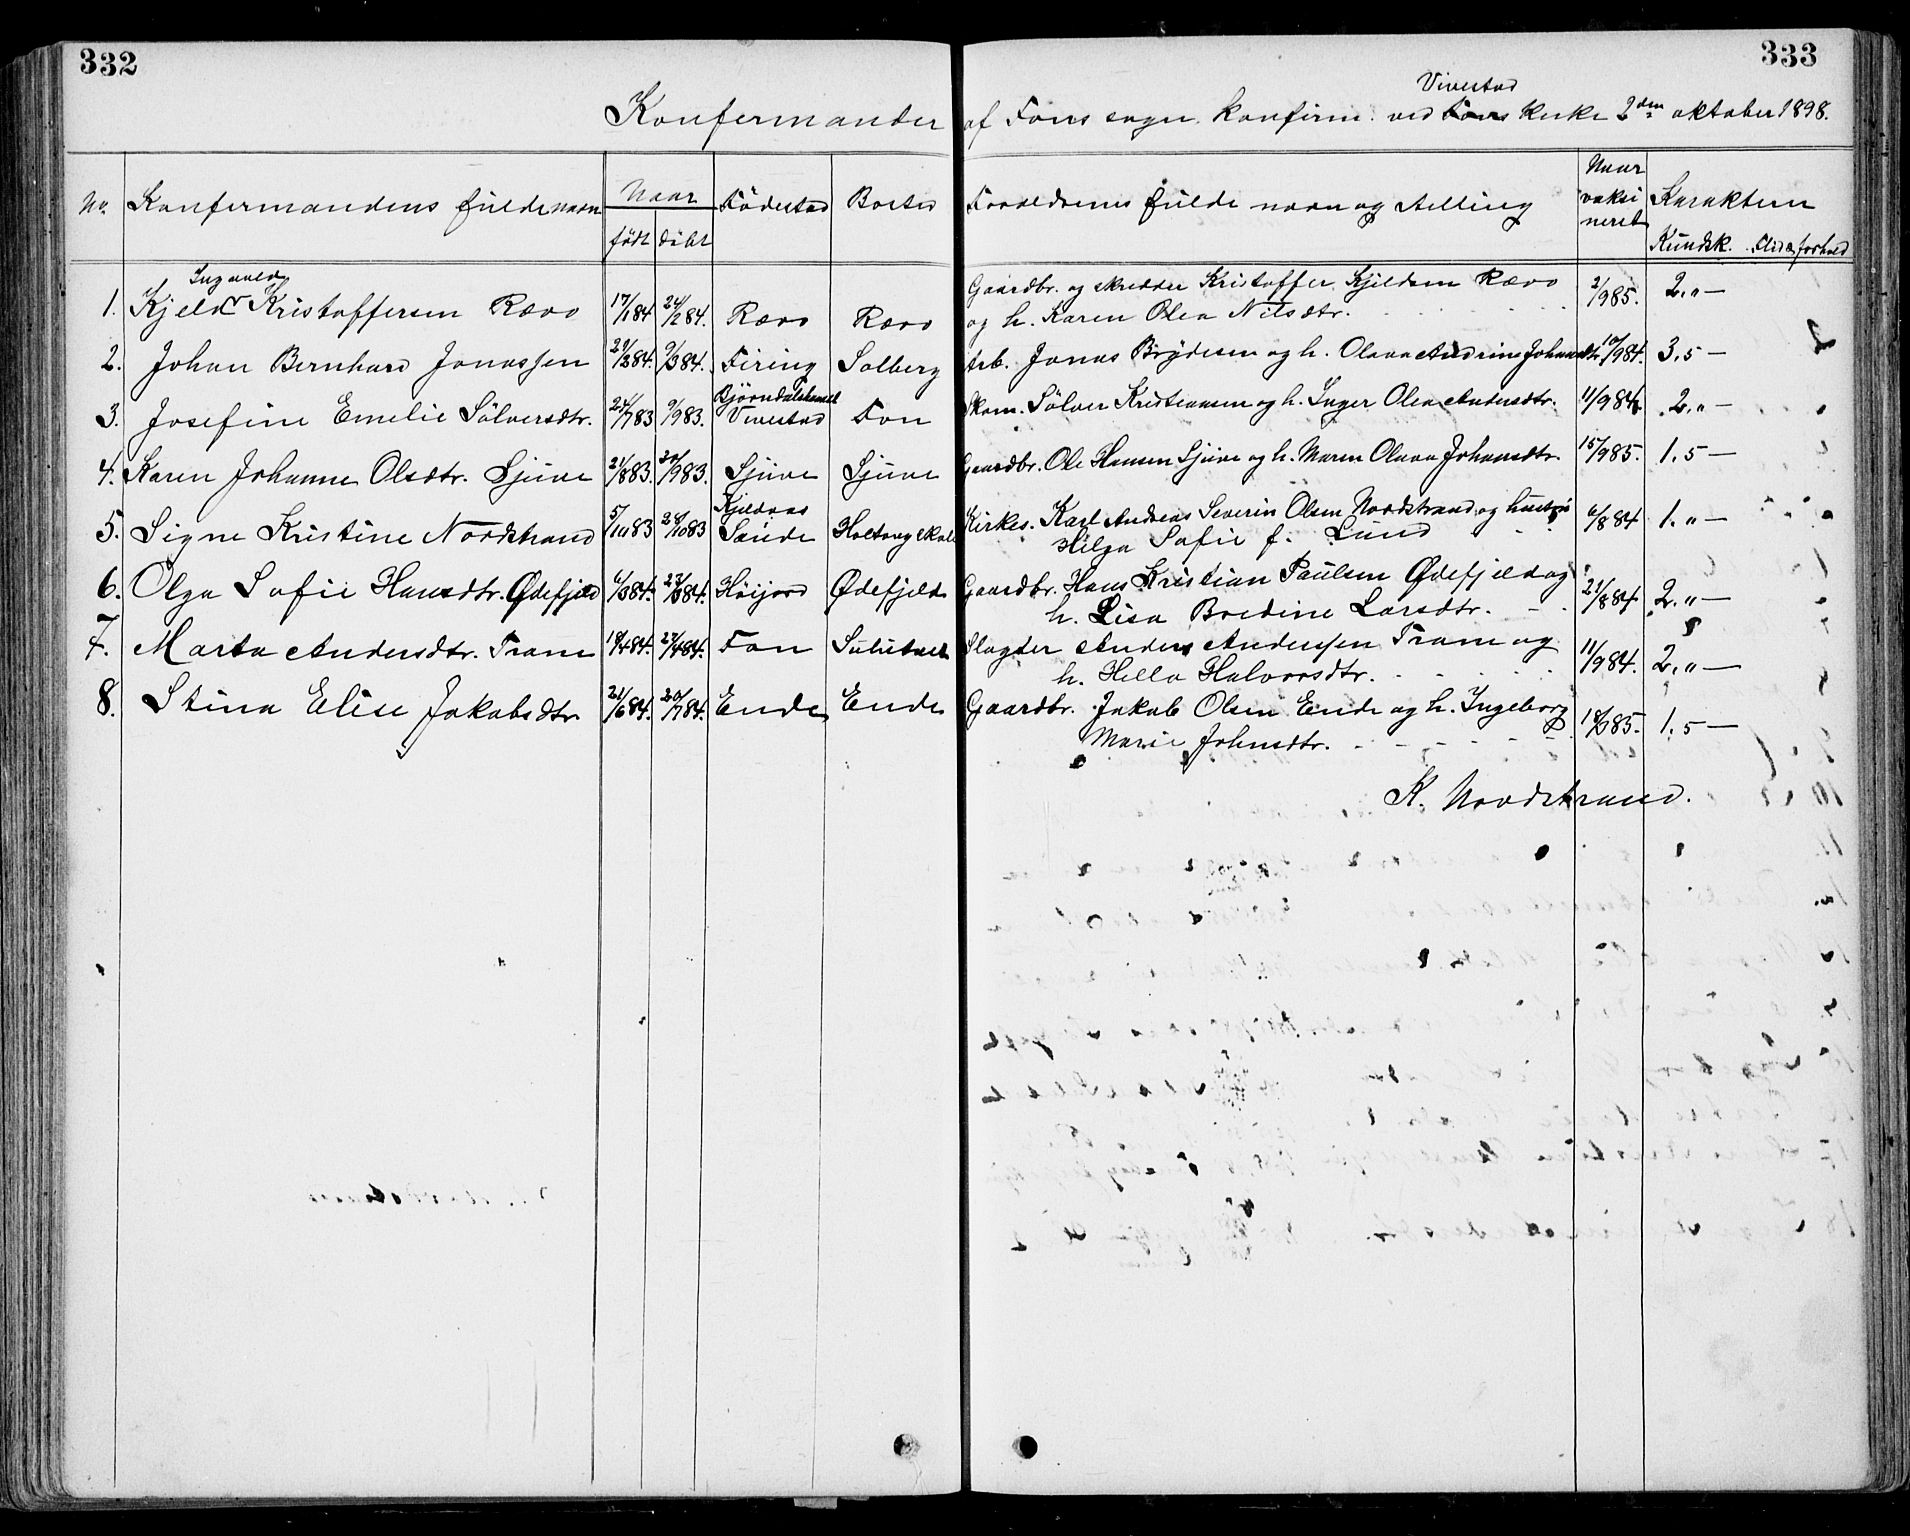 332
333
Konfermander af Fons sogn konfirm. ved Fons Vivestad kirke 2den oktober 1898.
No. Konfermandens fulde navn Naar født døbt Födested Bosted Forældrenes fulde navn og stilling Naar vaksineret Karakteren Kundsk.
1. Kjeld Ingvald Kristoffersen Rævo 17/1 84 24/2 84. Rævo Rævo Gaardbr. og skrædder Kristoffer Kjeldsen Rævo
og h. Karen Olea Nilsdtr. 2/9 85. 2,"—
2. Johan Bernhard Jonassen 9/3 84. Firing Solberg Arb. Jonas Brydesen og h. Olava Andrine Johansdtr. 10/9 84. 3,5—
3. Josefine Emelie Sölversdtr. 24/7 83 9/9 83. Björndalshavet
Vivestad Fon Skom. Sölver Kristensen og h. Inger Olea Andersdtr. 11/9 84. 2,"—
4. Karen Johanne Olsdtr. Sjuve 21/8 83. 20/9 83. Sjuve Sjuve Gaardbr. Ole Hansen Sjuve og h. Maren Olava Johansdtr. 15/9 85. 1,5—
5. Signe Kristine Nordstrand 5/10 83 28/10 83 Kjeldaas
Sande Holtung skole Kirkes. Karl Andreas Severin Olsen Nordstrand og hustru
Helga Sofie f. Lund 6/8 84 1,"—
6. Olga Sofie Hansdtr. Ødefjeld 6/3 84. 23/3 84. Höijord Ødefjeld Gaardbr. Hans Kristian Paulsen Ødefjeld og
h. Lisa Bredine Larsdtr. 21/8 84 2,"—
7. Marta Andersdtr. Fram 18/4 84. 27/4 84. Fon Slagter Anders Andersen Fram og
h. Hella Halvorsdtr. 11/9 84. 2,"—
8. Stina Elise Jakobsdtr. 21/6 84. 20/7 84. Ende Ende Gaardbr. Jakob Olsen Ende og h. Ingeborg
Marie Johnsdtr. 1,5—
K. Nordstrand.